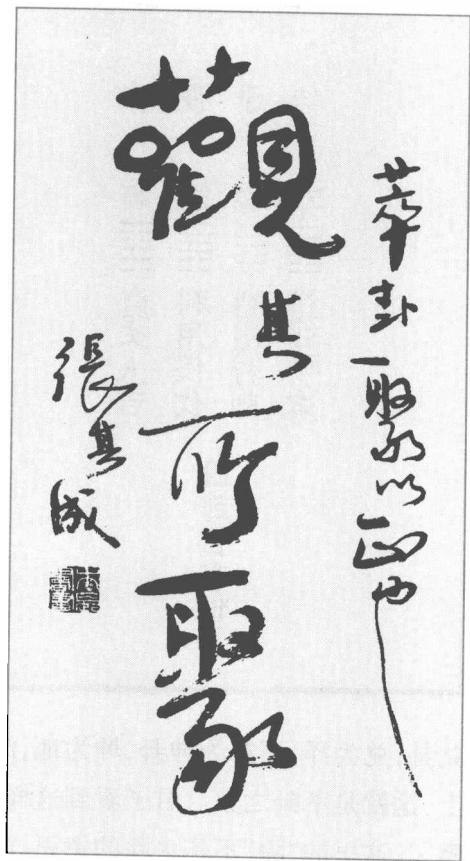 萃卦聚以正也
觀其所聚
張其成